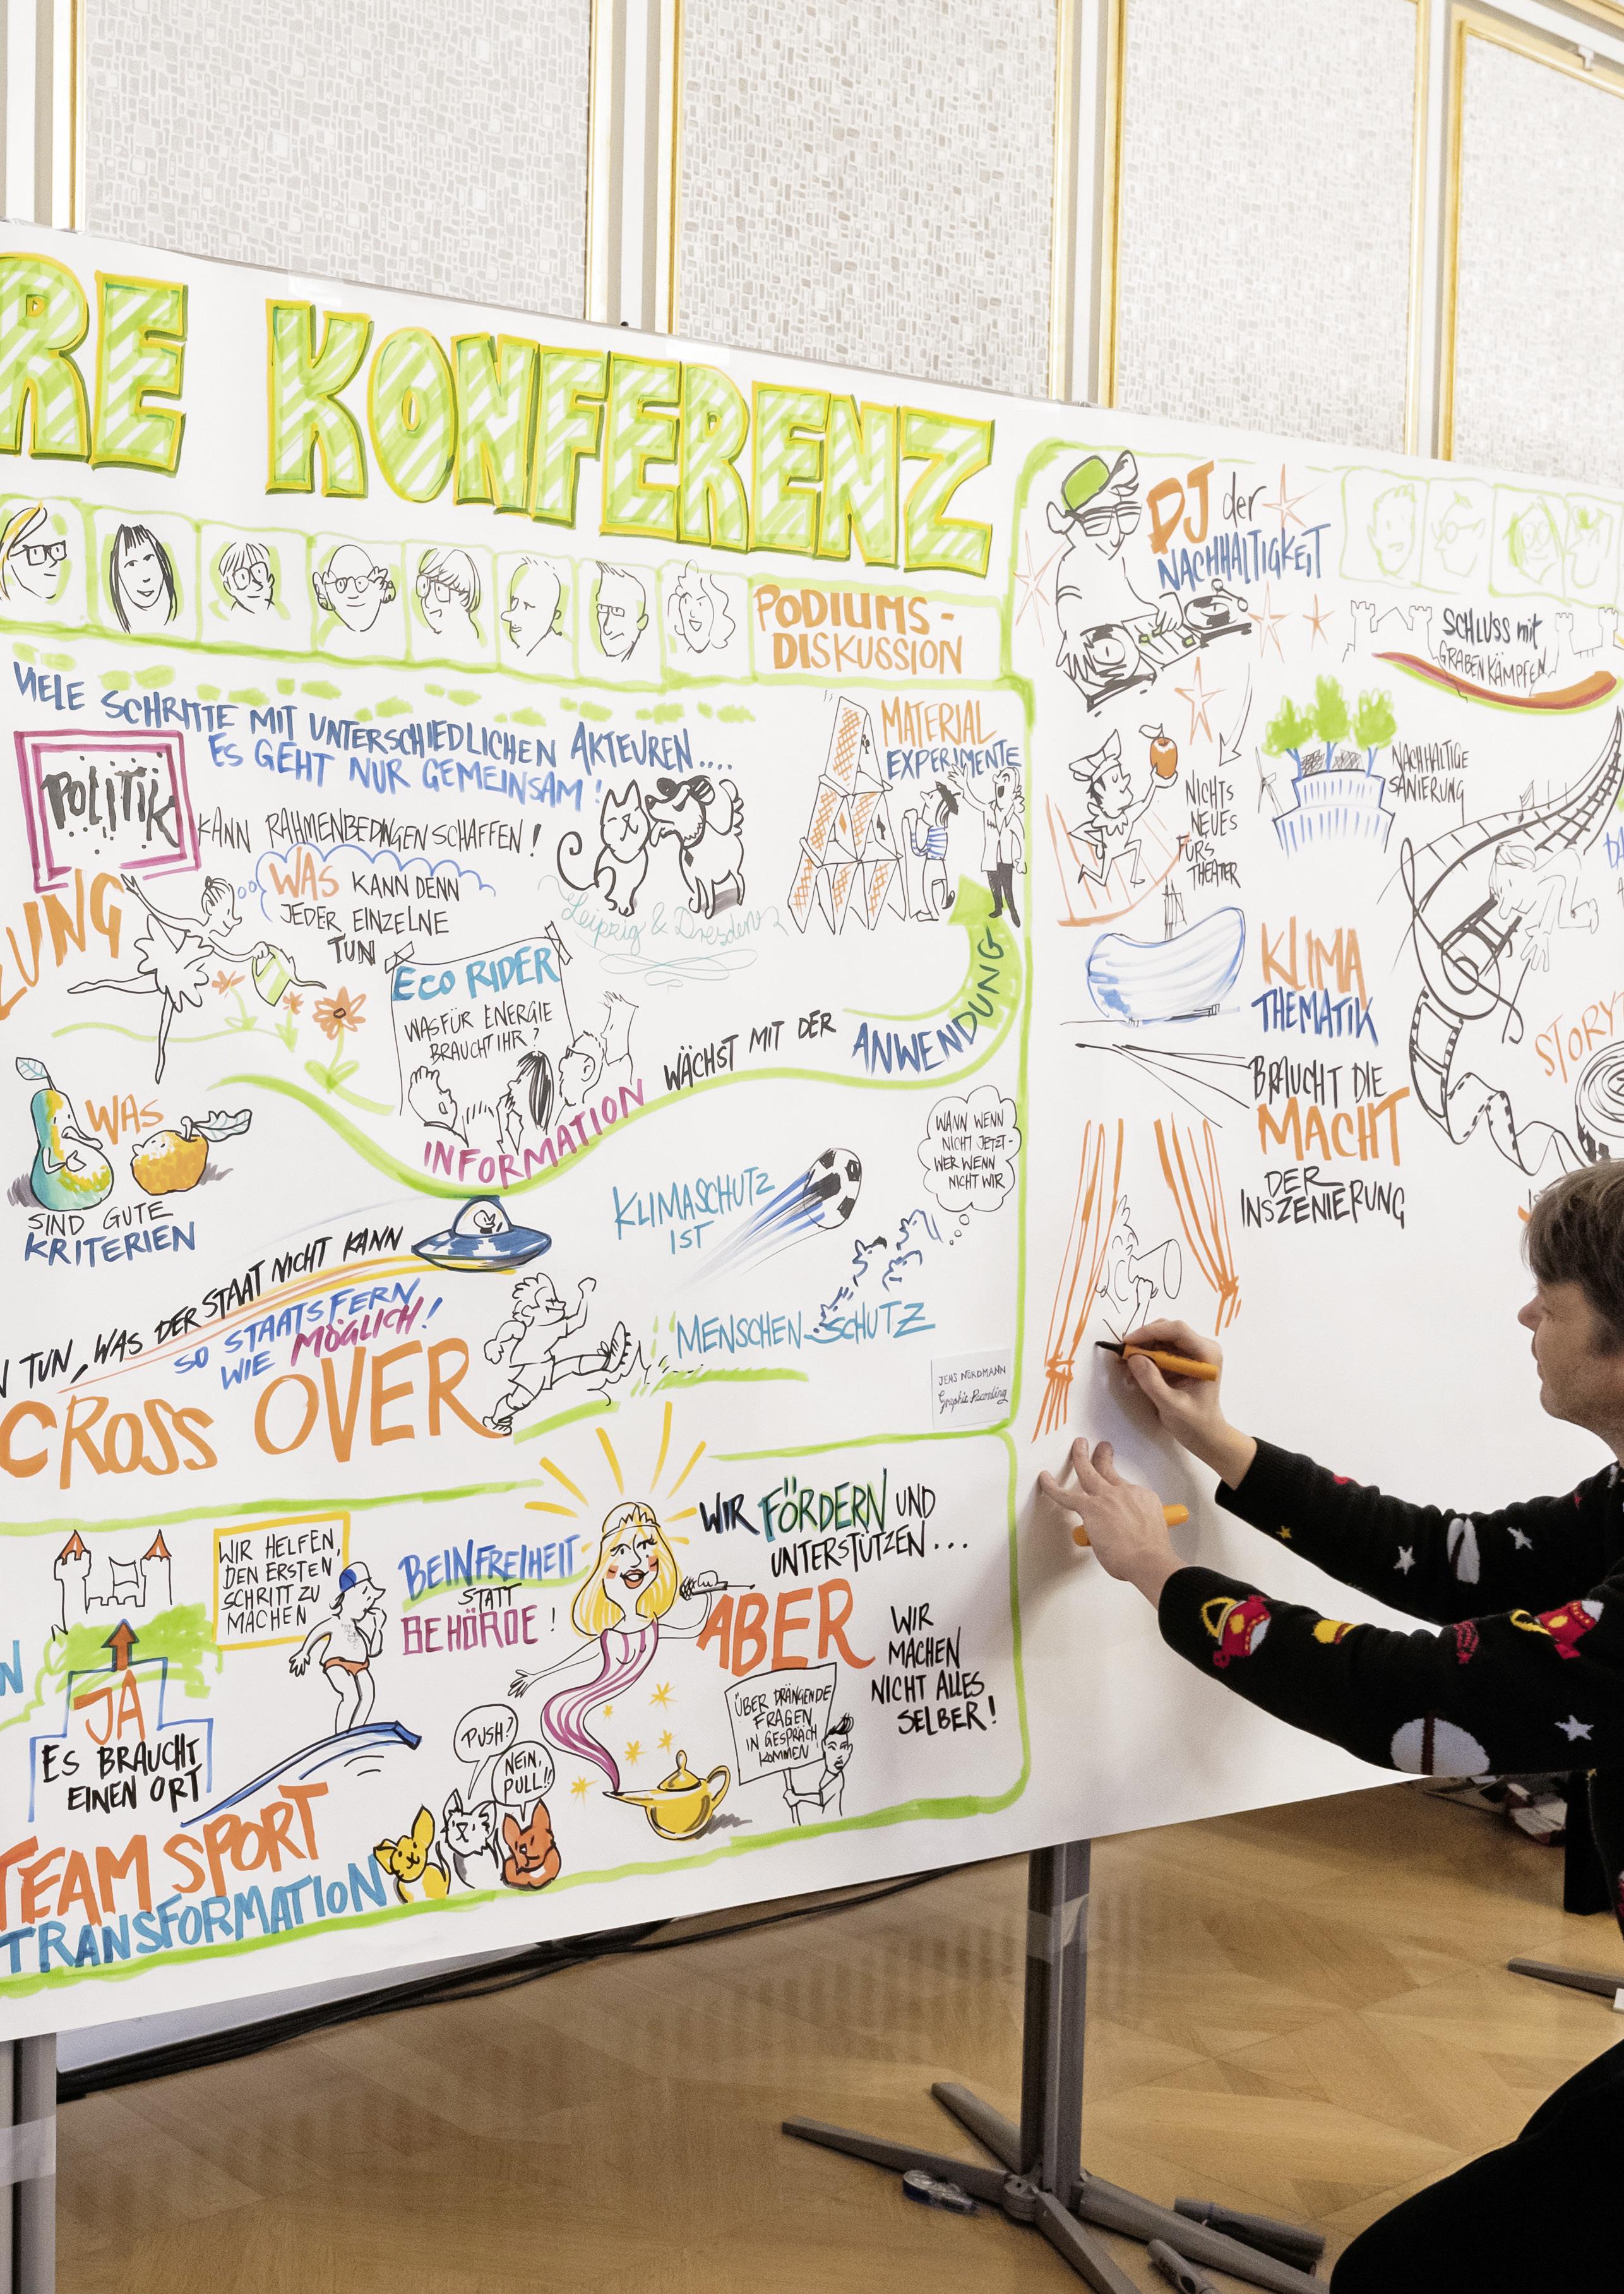 RE KONFERENZ
PODIUMS-
DISKUSSION
VIELE SCHRITTE MIT UNTERSCHIEDLICHEN AKTEUREN....
ES GEHT NUR GEMEINSAM!
POLITIK
KANN RAHMENBEDINGEN SCHAFFEN!
WAS KANN DENN
JEDER EINZELNE
TUN
Leipzig & Dresden
MATERIAL
EXPERIMENTE
ZUNG
ECO RIDER
WAS FÜR ENERGIE
BRAUCHT IHR?
INFORMATION WÄCHST MIT DER ANWENDUNG
WAS
SIND GUTE
KRITERIEN
TUN, WAS DER STAAT NICHT KANN
SO STAATSFERN
WIE MÖGLICH!
CROSS OVER
KLIMASCHUTZ
IST
MENSCHEN-SCHUTZ
WANN WENN
NICHT JETZT-
WER WENN
NICHT WIR
JENS NORDMANN
Graphic Recording
JA
ES BRAUCHT
EINEN ORT
WIR HELFEN,
DEN ERSTEN
SCHRITT ZU
MACHEN
BEINFREIHEIT
STATT
BEHÖRDE!
TEAM SPORT
TRANSFORMATION
PUSH?
NEIN,
PULL!!
WIR FÖRDERN UND
UNTERSTÜTZEN...
ABER
WIR
MACHEN
NICHT ALLES
SELBER!
ÜBER DRÄNGENDE
FRAGEN
IN GESPRÄCH
KOMMEN
DJ der
NACHHALTIGKEIT
SCHLUSS mit
GRABENKÄMPFEN
NICHTS
NEUES
FÜRS
THEATER
NACHHALTIGE
SANIERUNG
KLIMA
THEMATIK
BRAUCHT DIE
MACHT
DER
INSZENIERUNG
STORY